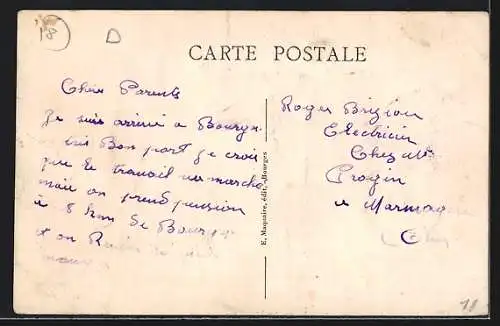 18
D
CARTE POSTALE
Chers Parents
Je suis arrivé a Bourges
Bon port je crois
que le travail va marché
mais on prend pension
à 8 km de Bourges
et on
E. Maquaire, édit., Bourges
Roger
Electricien
Chez Mr
à Marmagne
Cher
18